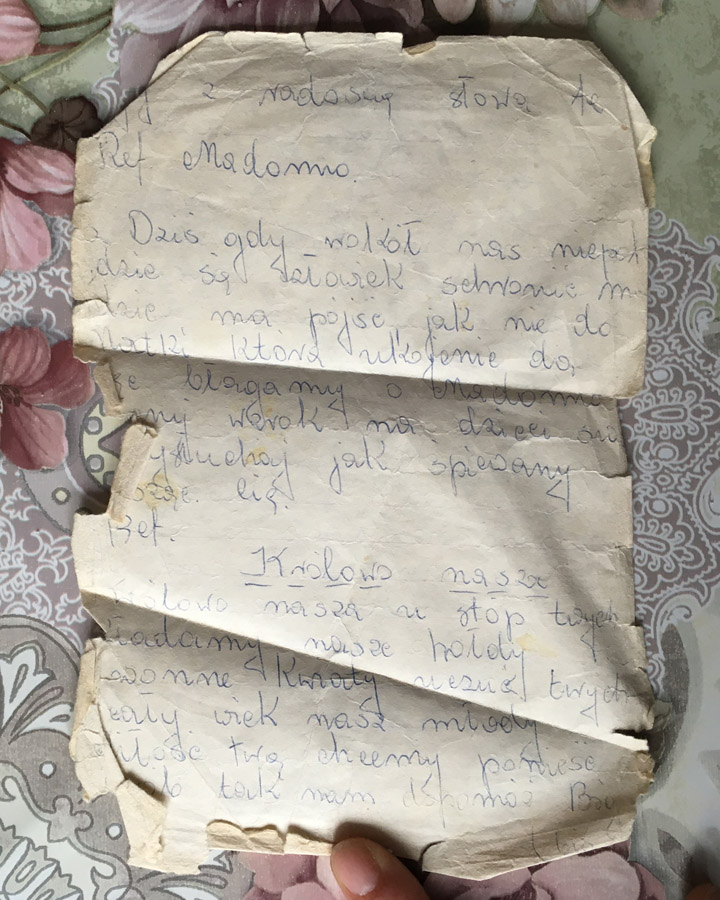 z radością słowa te
Ref Madonno.
Dziś gdy wokół nas niepok
dzie się człowiek schronić m
dzie ma pójść jak nie do
Matki która ukojenie da,
błagamy o Madonno
wzrok na dzieci swe
ysłuchaj jak śpiewamy
Cię.
Ref.
Królowo nasza
Królowo nasza u stóp twych
składamy nasze hołdy
wonne kwiaty uczuć twych
cały wiek nasz młody
miłość twą chcemy ponieść
tak nam dopomóż Bóg